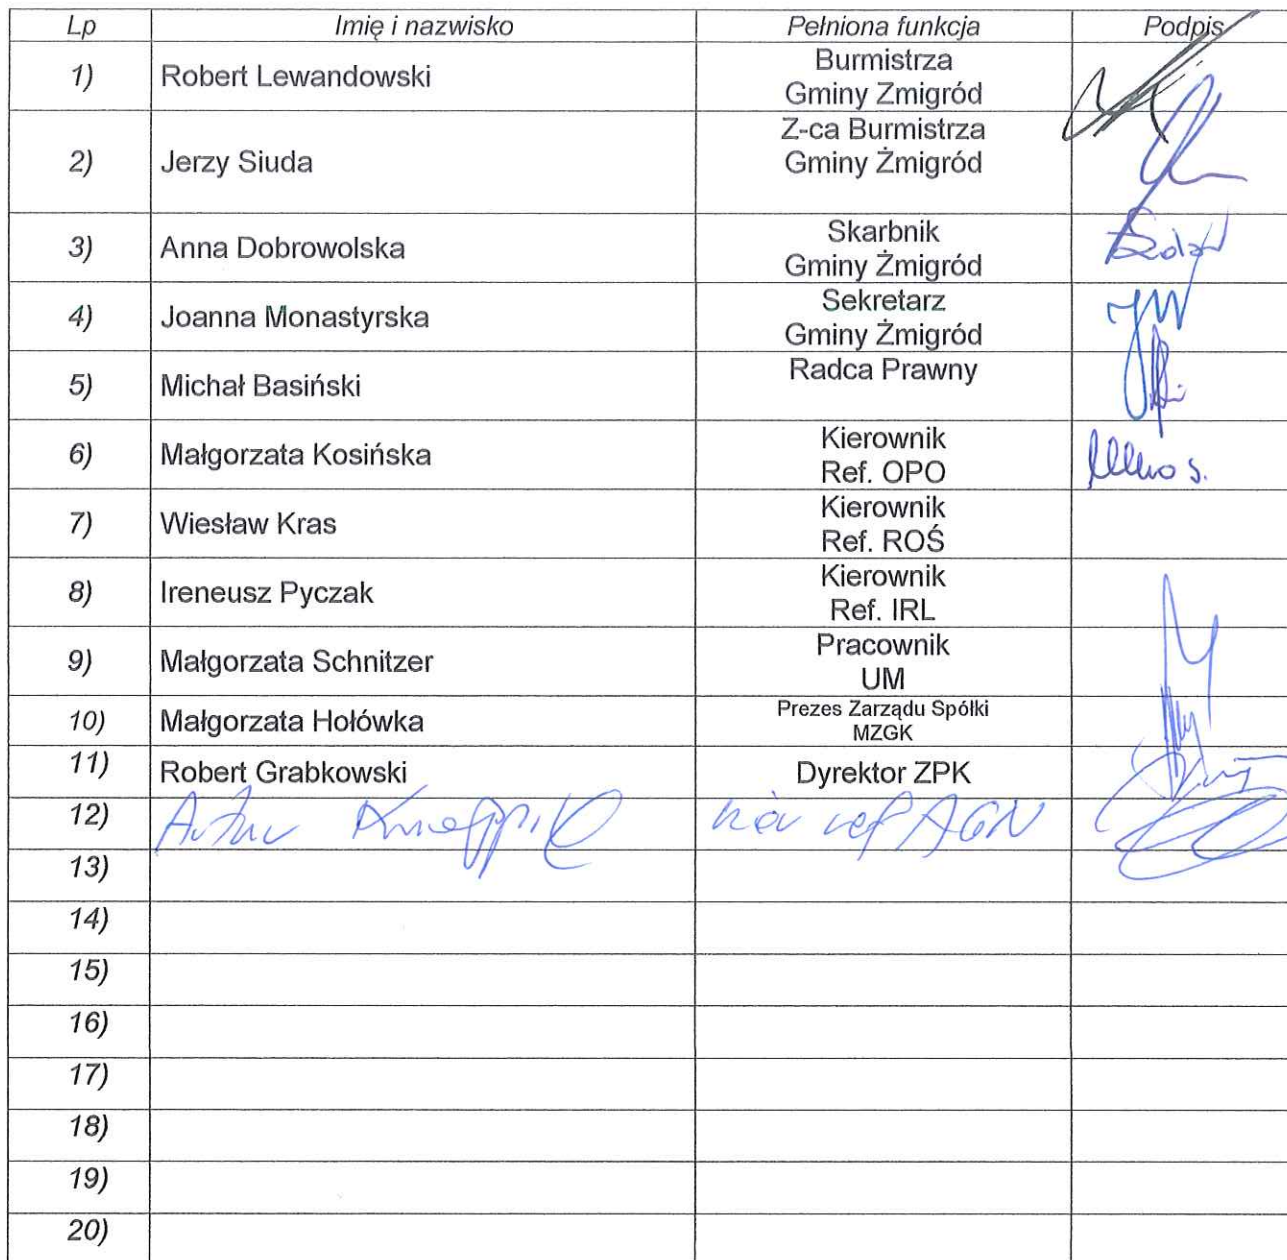 Lp Imię i nazwisko Pełniona funkcja Podpis
1) Robert Lewandowski Burmistrza
Gminy Zmigród
2) Jerzy Siuda Z-ca Burmistrza
Gminy Żmigród
3) Anna Dobrowolska Skarbnik
Gminy Żmigród
4) Joanna Monastyrska Sekretarz
Gminy Żmigród
5) Michał Basiński Radca Prawny
6) Małgorzata Kosińska Kierownik
Ref. OPO
7) Wiesław Kras Kierownik
Ref. ROŚ
8) Ireneusz Pyczak Kierownik
Ref. IRL
9) Małgorzata Schnitzer Pracownik
UM
10) Małgorzata Hołówka Prezes Zarządu Spółki
MZGK
11) Robert Grabkowski Dyrektor ZPK
12) Artur ref AGN
13)
14)
15)
16)
17)
18)
19)
20)